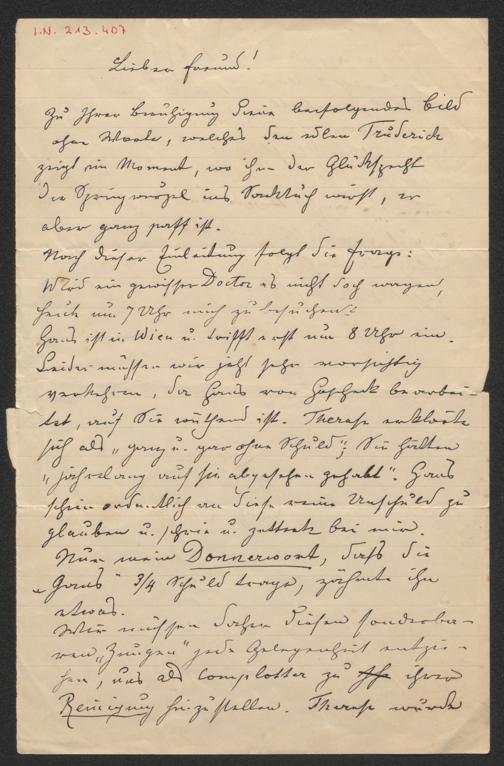 I.N. 213.407
Lieber Freund!
Zu Ihrer Beruhigung diene beifolgendes Bild
ohne Worte, welches den edlen Truderich
zeigt im Moment, wo ihm der Glückspecht
die Springwurzel ins Sacktuch wirft, er
aber ganz paff ist.
Nach dieser Einleitung folgt die Frage:
Wird ein gewisser Doctor es nicht doch wagen,
heute um 7 Uhr mich zu besuchen?
Hans ist in Wien u. trifft erst um 8 Uhr ein.
Leider müssen wir jetzt sehr vorsichtig
verkehren, da Hans von bearbei-
tet, auf Sie wüthend ist. Therese erklärte
sich als „ganz u. gar ohne Schuld"; Sie hätten
„jahrelang auf sie abgesehen gehabt". Hans
schien ordentlich an diese reine Unschuld zu
glauben u. schrie u. zetterte bei mir.
Nur mein Donnerwort, dass die
„Gans" 3/4 Schuld trage, zähmte ihn
etwas.
Wir müssen daher diesen sonderba-
ren „Zeugen" jede Gelegenheit entzie-
hen, uns als Complotter zu ihrer
Reinigung hinzustellen. Therese würde